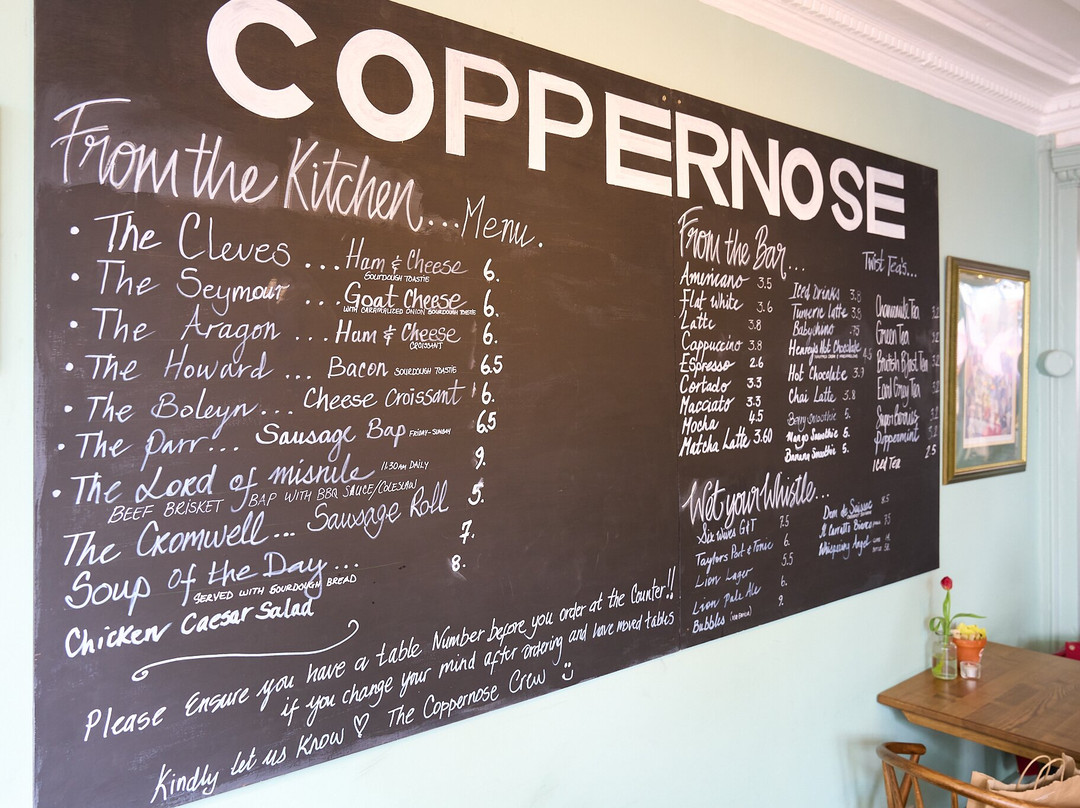 COPPERNOSE
From the Kitchen... Menu.
• The Cleves ... Ham & Cheese 6.
SOURDOUGH TOASTIE
• The Seymour ... Goat Cheese 6.
WITH CARAMALIZED ONION SOURDOUGH TOASTIE
• The Aragon ... Ham & Cheese 6.
CROISSANT
• The Howard ... Bacon SOURDOUGH TOASTIE 6.5
• The Boleyn... Cheese Croissant 6.
• The Parr... Sausage Bap FRIDAY-SUNDAY 6.5
• The Lord of misrule 11:30AM DAILY 9.
BEEF BRISKET BAP WITH BBQ SAUCE/COLESLAW
The Cromwell... Sausage Roll 5.
Soup of the Day... 7.
SERVED WITH SOURDOUGH BREAD
Chicken Caesar Salad 8.
Please ensure you have a table Number before you order at the Counter!!
if you change your mind after ordering and have moved tables
Kindly let us know ♡ The Coppernose Crew
From the Bar...
Americano 3.5
Flat White 3.6
Latte 3.8
Cappuccino 3.8
Espresso 2.6
Cortado 3.3
Macciato 3.3
Mocha 4.5
Matcha Latte 3.60
Iced Drinks 3.8
Tumeric Latte 3.8
Babychino .75
Henrys Hot Chocolate 4.5
Hot Chocolate 3.7
Chai Latte 3.8
Berry Smoothie 5.
Mango Smoothie 5.
Banana Smoothie 5.
Twist Tea's...
Chamomile Tea
Green Tea
British B'fast Tea
Earl Grey Tea
Superberries
Peppermint
Iced Tea 2.5
Wet your Whistle...
Six wives G&T 7.5
Taylors Port & Tonic 6.
Lion Lager 5.5
Lion Pale Ale 6.
Bubbles 9.
Dom de Saissac 8.5
Il Carretto Bianco 7.5
Whispering Angel